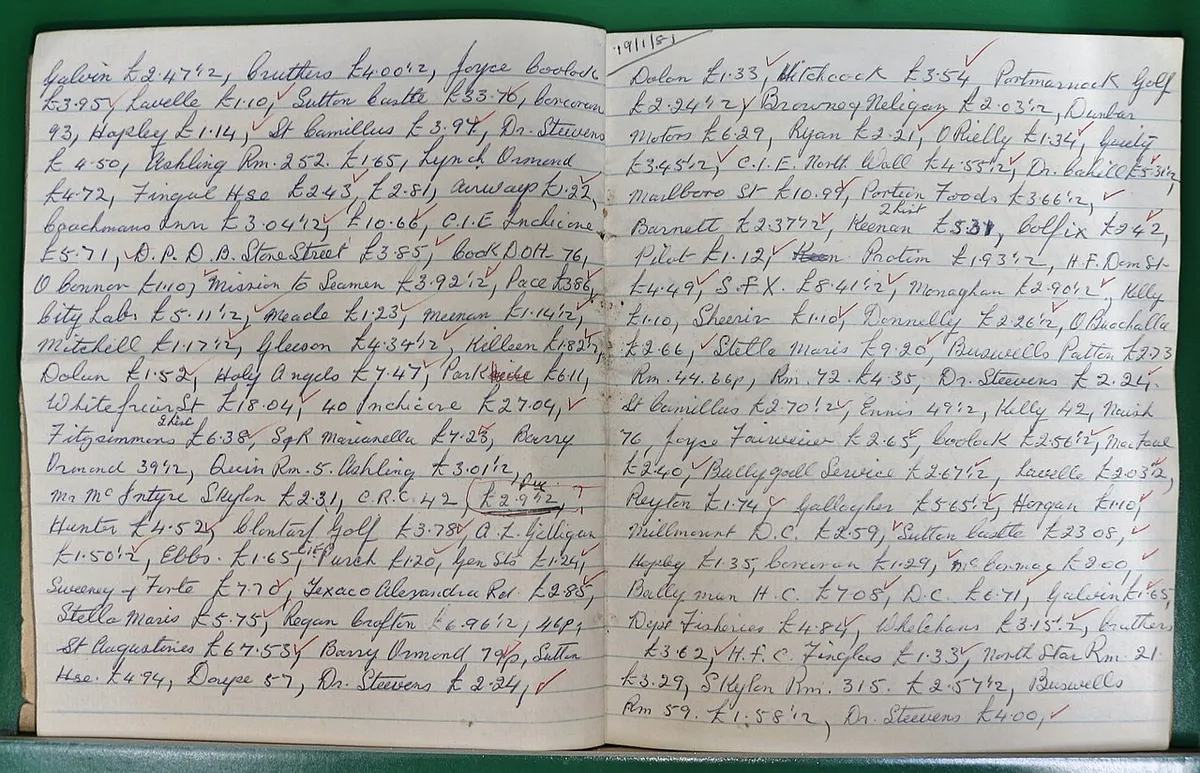 Galvin £2.47½, Cruthers £4.00½, Joyce Coolock
£3.95, Lavelle £1.10, Sutton Castle £33.70, Corcoran
93, Hopley £1.14, St Camillus £3.97, Dr. Steevens
£4.50, Ashling Rm. 252. £1.65, Lynch Ormond
£4.72, Fingal Hse £2.43, £2.81, Airways £1.22,
Coachmans Inn £3.04½, £10.66, C.I.E Inchicore
£5.71, D.P.D.B. Store Street £3.85, Cook DOH 76,
O Connor £1.10, Mission to Seamen £3.92½, Pace £3.86,
City Labs £5.11½, Meade £1.23, Meenan £1.14½,
Mitchell £1.17½, Gleeson £4.34½, Killeen £1.82½,
Dolan £1.52, Holy Angels £7.47, Park £6.11,
Whitefriar St £18.04, 40 Inchicore £27.04,
2 List
Fitzsimmons £6.38, Sgk Marianella £7.23, Barry
Ormond 39½, Quin Rm. 5. Ashling £3.01½,
Mr Mc Intyre Skylon £2.31, C.R.C. 42 £2.9½,
Hunter £4.52, Clontarf Golf £3.78, A.L. Gilligan
£1.50½, Ebbs. £1.65, Purch £1.20, Gen Sts £1.24,
Sweeney & Forte £7.70, Texaco Alexandra Rd. £2.85,
Stella Maris £5.75, Regan Crofton £6.96½, 46p,
St Augustines £67.53, Barry Ormond 79p, Sutton
Hse. £4.94, Doupe 57, Dr. Steevens £2.24,
19/1/81
Dolan £1.33, Hitchcock £3.54 Portmarnock Golf
£2.24½, Browneg Neligan £2.03½, Dunbar
Motors £6.29, Ryan £2.21, O Rielly £1.34, Gerity
£3.45½, C.I.E. North Wall £4.55½, Dr. Cahill £5.31½,
Marlboro St £10.99, Portion Foods £3.66½,
2 List
Barnett £2.37½, Keenan £5.31, Colfix £2.42,
Pilot £1.12, Protim £1.93½, H.F. Dom St.
£4.49, S.F.X. £8.41½, Monaghan £2.90½, Kelly
£1.10, Sheerin £1.10, Donnelly £2.26½, O Buachalla
£2.66, Stella Maris £9.20, Buswells Patton £2.73
Rm. 44. 66p, Rm. 72. £4.35, Dr. Steevens £2.24.
St Camillus £2.70½, Ennis 49½, Kelly 42, Naish
76, Joyce Fairview £2.65, Coolock £2.56½, MacFaul
£2.40, Ballygall Service £2.67½, Lavelle £2.03½,
Peyton £1.74, Gallagher £5.65½, Horgan £1.10,
Millmount D.C. £2.59, Sutton Castle £23.08,
Hopley £1.35, Corcoran £1.29, McCormac £2.00,
Ballymun H.C. £7.08, D.C. £6.71, Galvin £1.65,
Dyse Fisheries £4.84, Whelehans £3.15½, Cruthers
£3.62, H.F.C. Finglas £1.33, North Star Rm. 21.
£3.29, Skylon Rm. 315. £2.57½, Buswells
Rm 59. £1.58½, Dr. Steevens £4.00,